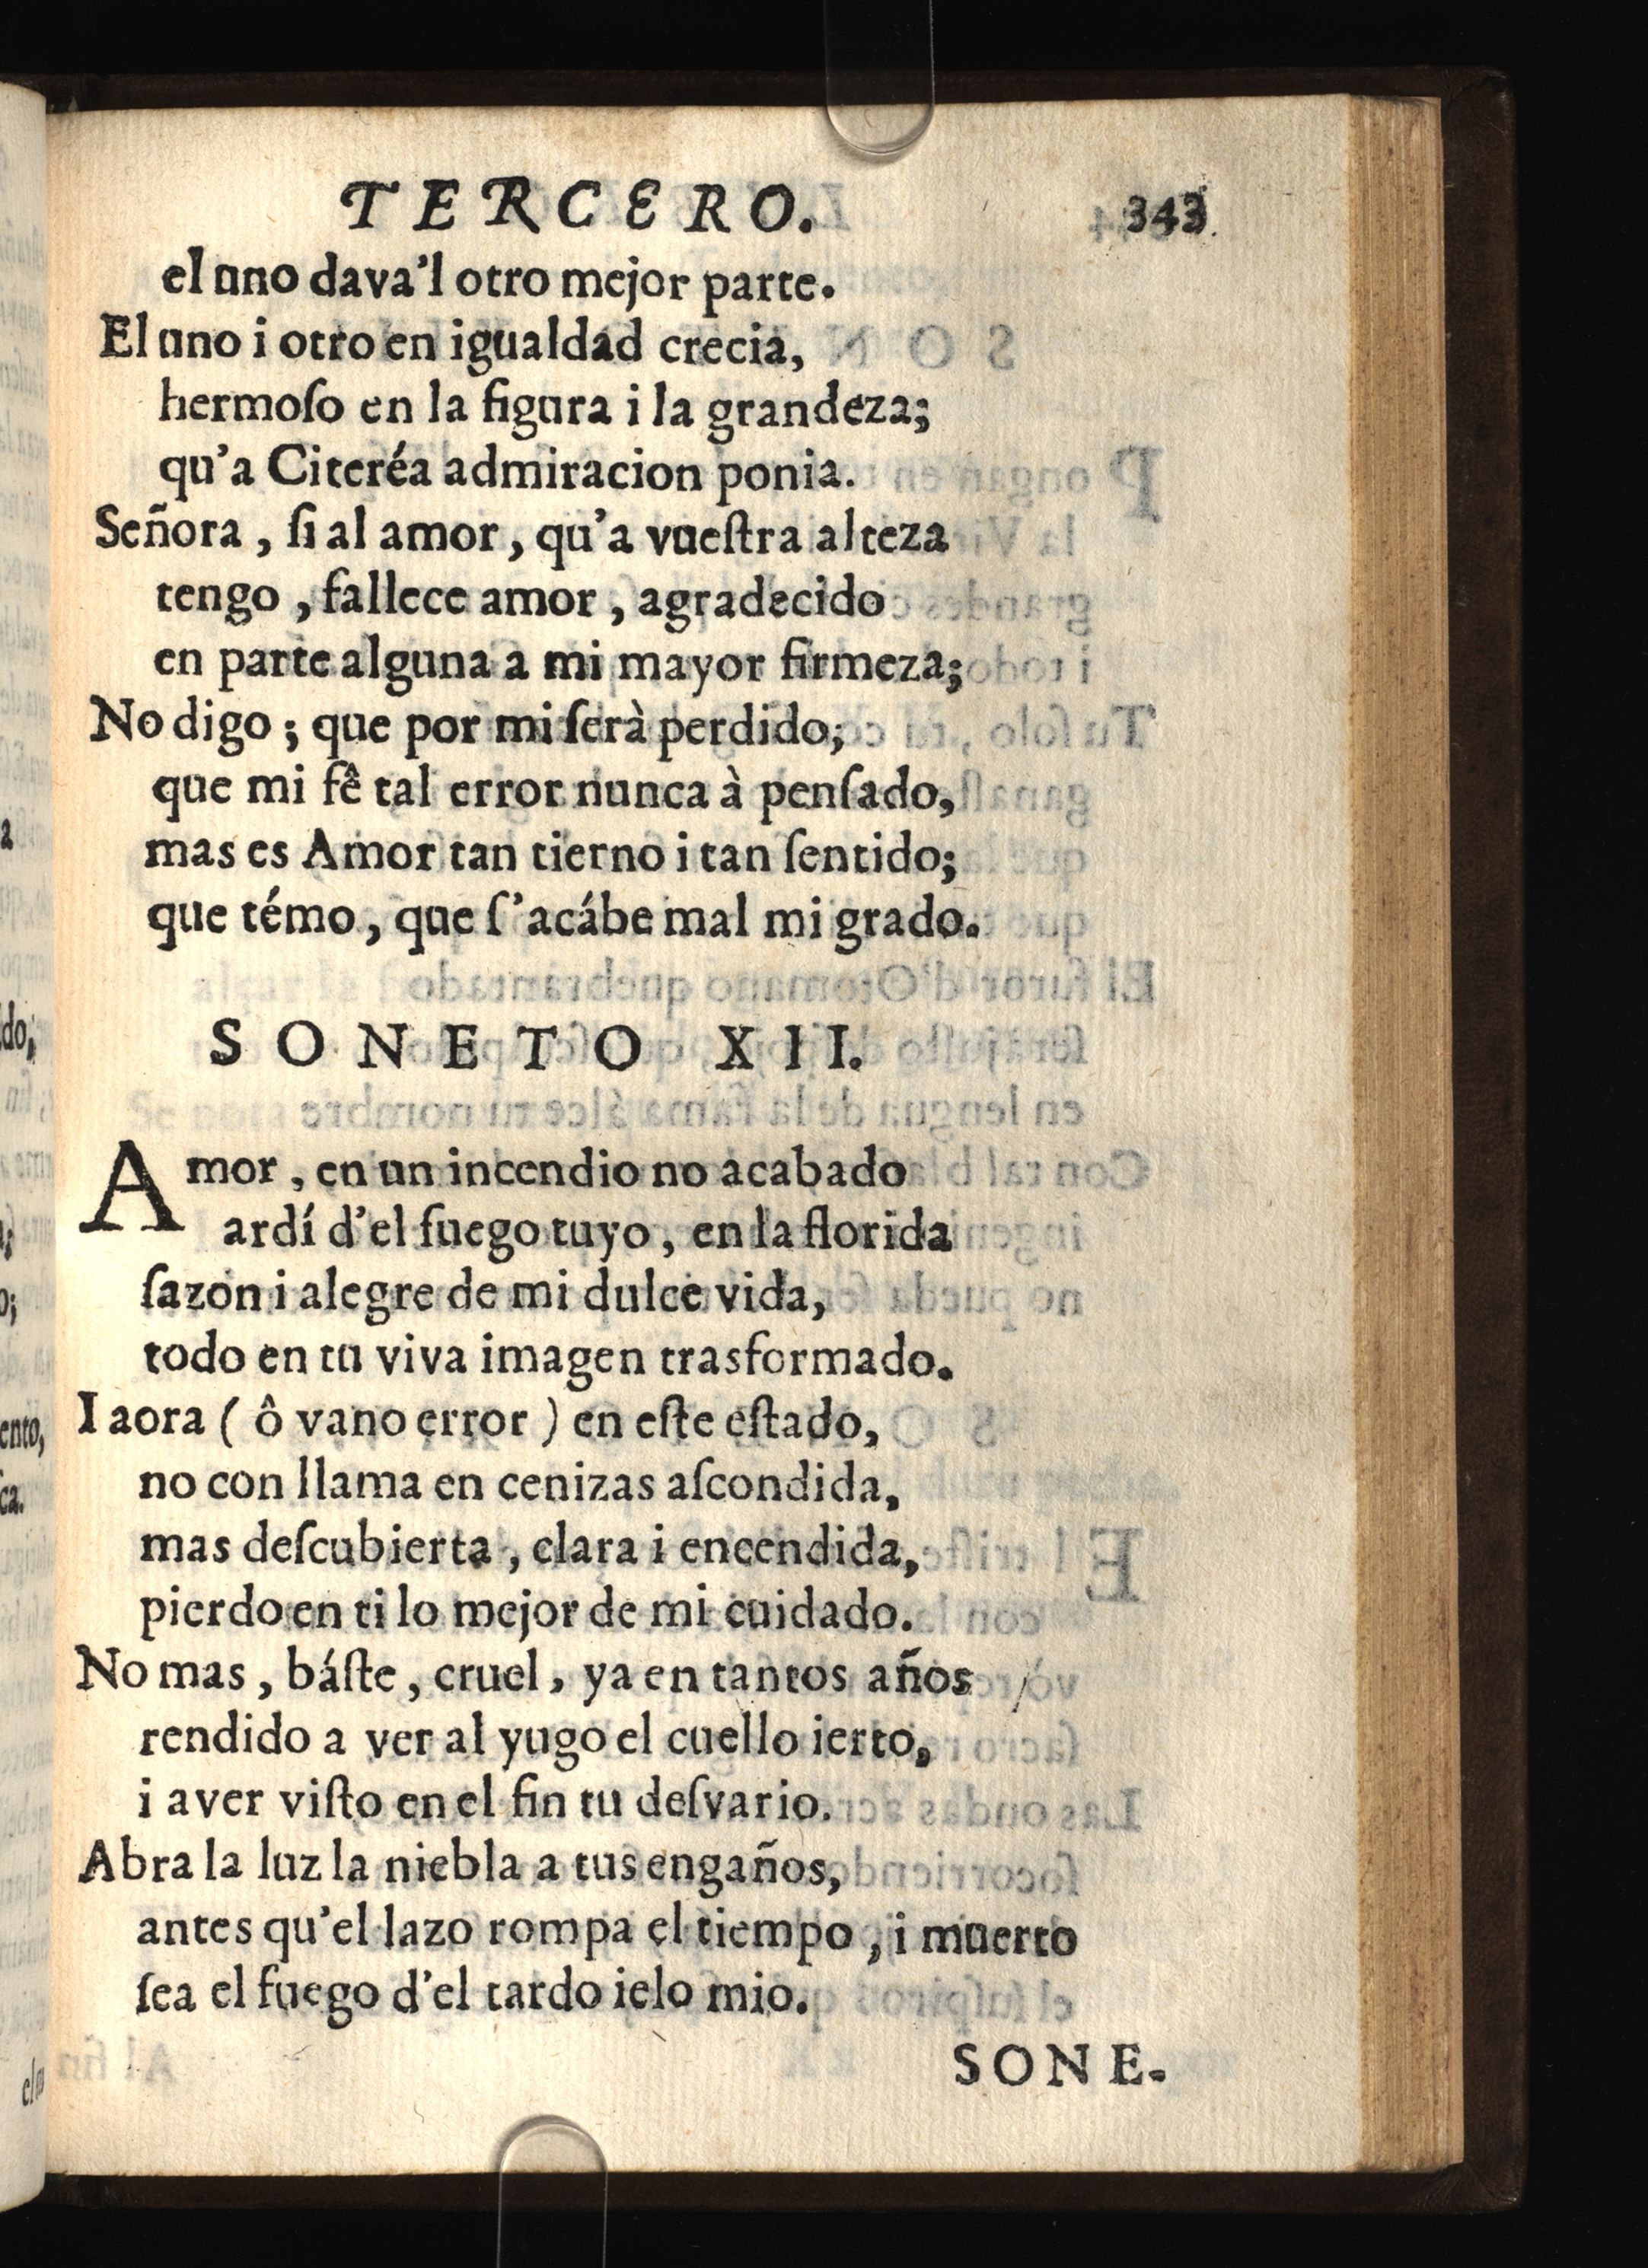 TERCERO. 343
el uno dava'l otro mejor parte.
El uno i otro en igualdad crecia,
hermoſo en la figura i la grandeza;
qu'a Citeréa admiracion ponia.
Señora, ſi al amor, qu'a vueſtra alteza
tengo, fallece amor, agradecido
en parte alguna a mi mayor firmeza;
No digo; que por mi ſerà perdido;
que mi fê tal error nunca à penſado,
mas es Amor tan tierno i tan ſentido;
que témo, que ſ'acábe mal mi grado.
SONETO XII.
Amor, en un incendio no acabado
ardí d'el fuego tuyo, en la florida
ſazon i alegre de mi dulce vida,
todo en tu viva imagen trasformado.
I aora (ô vano error) en eſte eſtado,
no con llama en cenizas aſcondida,
mas deſcubierta, clara i encendida,
pierdo en ti lo mejor de mi cuidado.
No mas, báſte, cruel, ya en tantos años
rendido a ver al yugo el cuello ierto,
i aver viſto en el fin tu deſvario.
Abra la luz la niebla a tus engaños,
antes qu'el lazo rompa el tiempo, i muerto
ſea el fuego d'el tardo ielo mio.
SONE-